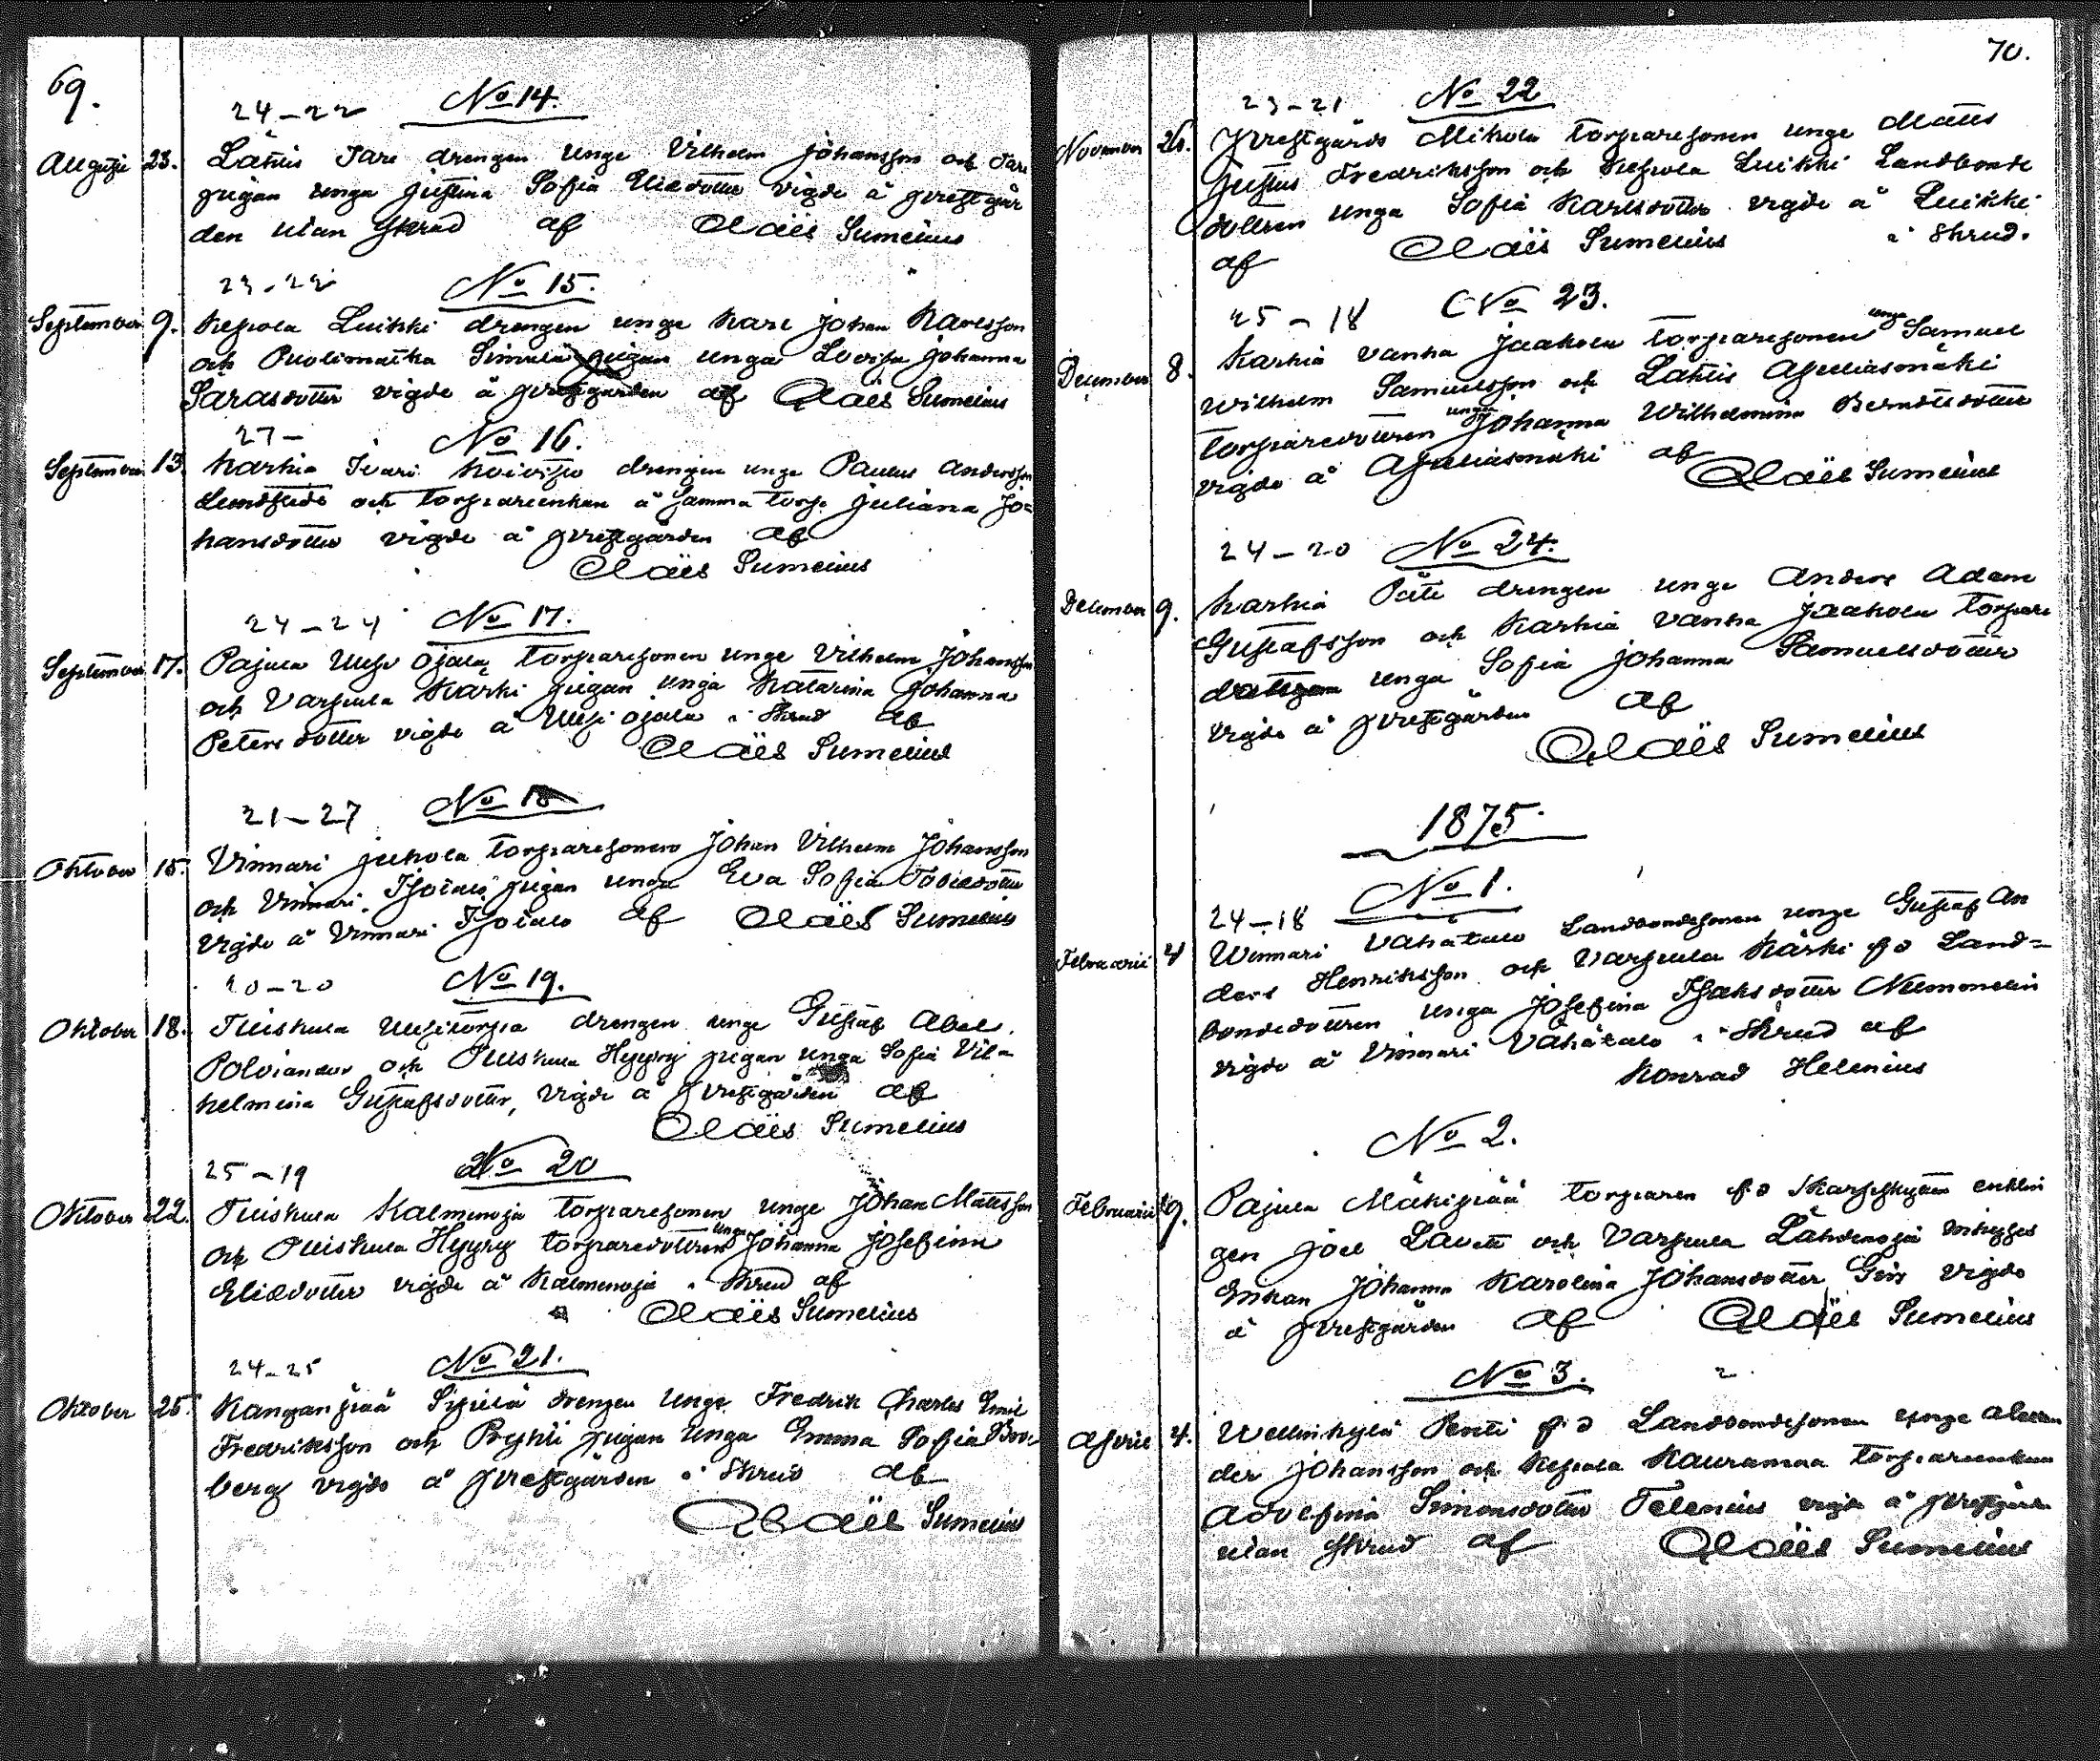 69.
24-22 No 14.
Augusti 23. Lättis Tari drengen unge Vilhelm Johansson och Tari
pigan unga Justina Sofia Eliædotter vigde å prestgår
den utan skrud af Claës Sumelius
23-22 No 15.
September 9. Kespola Luikki drengen unge Karl Johan Karlsson
och Puolimatka Simula pigan unga Lovisa Johanna
Sarasdotter vigde å prestgården af Claës Sumelius
27- No 16.
September 13. Karhia Ivari Koivisto drengen unge Paulus Andersson
Lundstedt och torpareenkan å samma torp Juliana Jo=
hansdotter vigde å prestgården af
Claës Sumelius
24-24 No 17.
September 17. Pajula Uusi Ojala torparesonen unge Vilhelm Johansson
och Varpula Kärki pigan unga Katarina Johanna
Petersdotter vigde å Uusi ojala i skrud af
Claës Sumelius
21-27 No 18
Oktober 15. Vinnari Juhola torparesonen Johan Vilhelm Johansson
och Vinnari Isotalo pigan unga Eva Sofia Tobiedotter
vigde å Vinnari Isotalo af Claës Sumelius
20-20 No 19.
Oktober 18. Tuiskula Uusitorpa drengen unge Gustaf Abel
Polviander och Tuiskula Hyyry pigan unga Sofia Vil=
helmina Gustafsdotter, vigde å prestgården af
Claës Sumelius
25-19 No 20
Oktober 22. Tuiskula Kalmenoja torparesonen unge Johan Mattsson
och Tuiskula Hyyry torparedottren unga Johanna Josefina
Eliædotter vigde å Kalmenoja i skrud af
Claës Sumelius
24-25 No 21.
Oktober 25. Kanganpää Sipilä drengen unge Fredrik Charles Emil
Fredriksson och Pryhti pigan unga Emma Sofia Bro=
berg vigde å prestgården i skrud af
Claës Sumelius
70.
23-21 No 22
November 26. Prestgårds Mikola torparesonen unge Matts
Justus Fredriksson och Kespola Luikki Landbonde
dottren unga Sofia Karlsdotter vigde å Luikki
af Claës Sumelius i skrud.
25-18 No 23.
December 8. Karhia Vanha Jaakola torparesonen unge Samuel
Wilhelm Samuelsson och Lättis Apuliasmäki
torparedottren unga Johanna Wilhelmina Berndtsdotter
vigde å Apuliasmäki af
Claës Sumelius
24-20 No 24.
December 9. Karhia Päti drengen unge Anders Adam
Gustafsson och Karhia Vanha Jaakola torpare
dottren unga Sofia Johanna Samuelsdotter
vigde å prestgården af
Claës Sumelius
1875.
24-18 No 1.
Februarii 4 Winnari Vähätalo Landbondesonen unge Gustaf An
ders Henriksson och Varpula Kärki fd Land=
bondedottren unga Josefina Isaksdotter Nummelin
vigde å Vinnari Vähätalo i skrud af
Konrad Helenius
No 2.
Februarii 19. Pajula Mäkipää torparen fd enklin
gen Joel Lavett och Varpula Lähdenoja inhyses
Enkan Johanna Karolina Johansdotter vigde
å prestgården af Claës Sumelius
No 3. 2
April 4. Wellinkylä Pentti fd Landbondesonen unge Alexan
der Johansson och Kespola Kauramaa torpareenkan
Adolfina Simonsdotter Telenius vigde å prestgården
utan skrud af Claës Sumelius